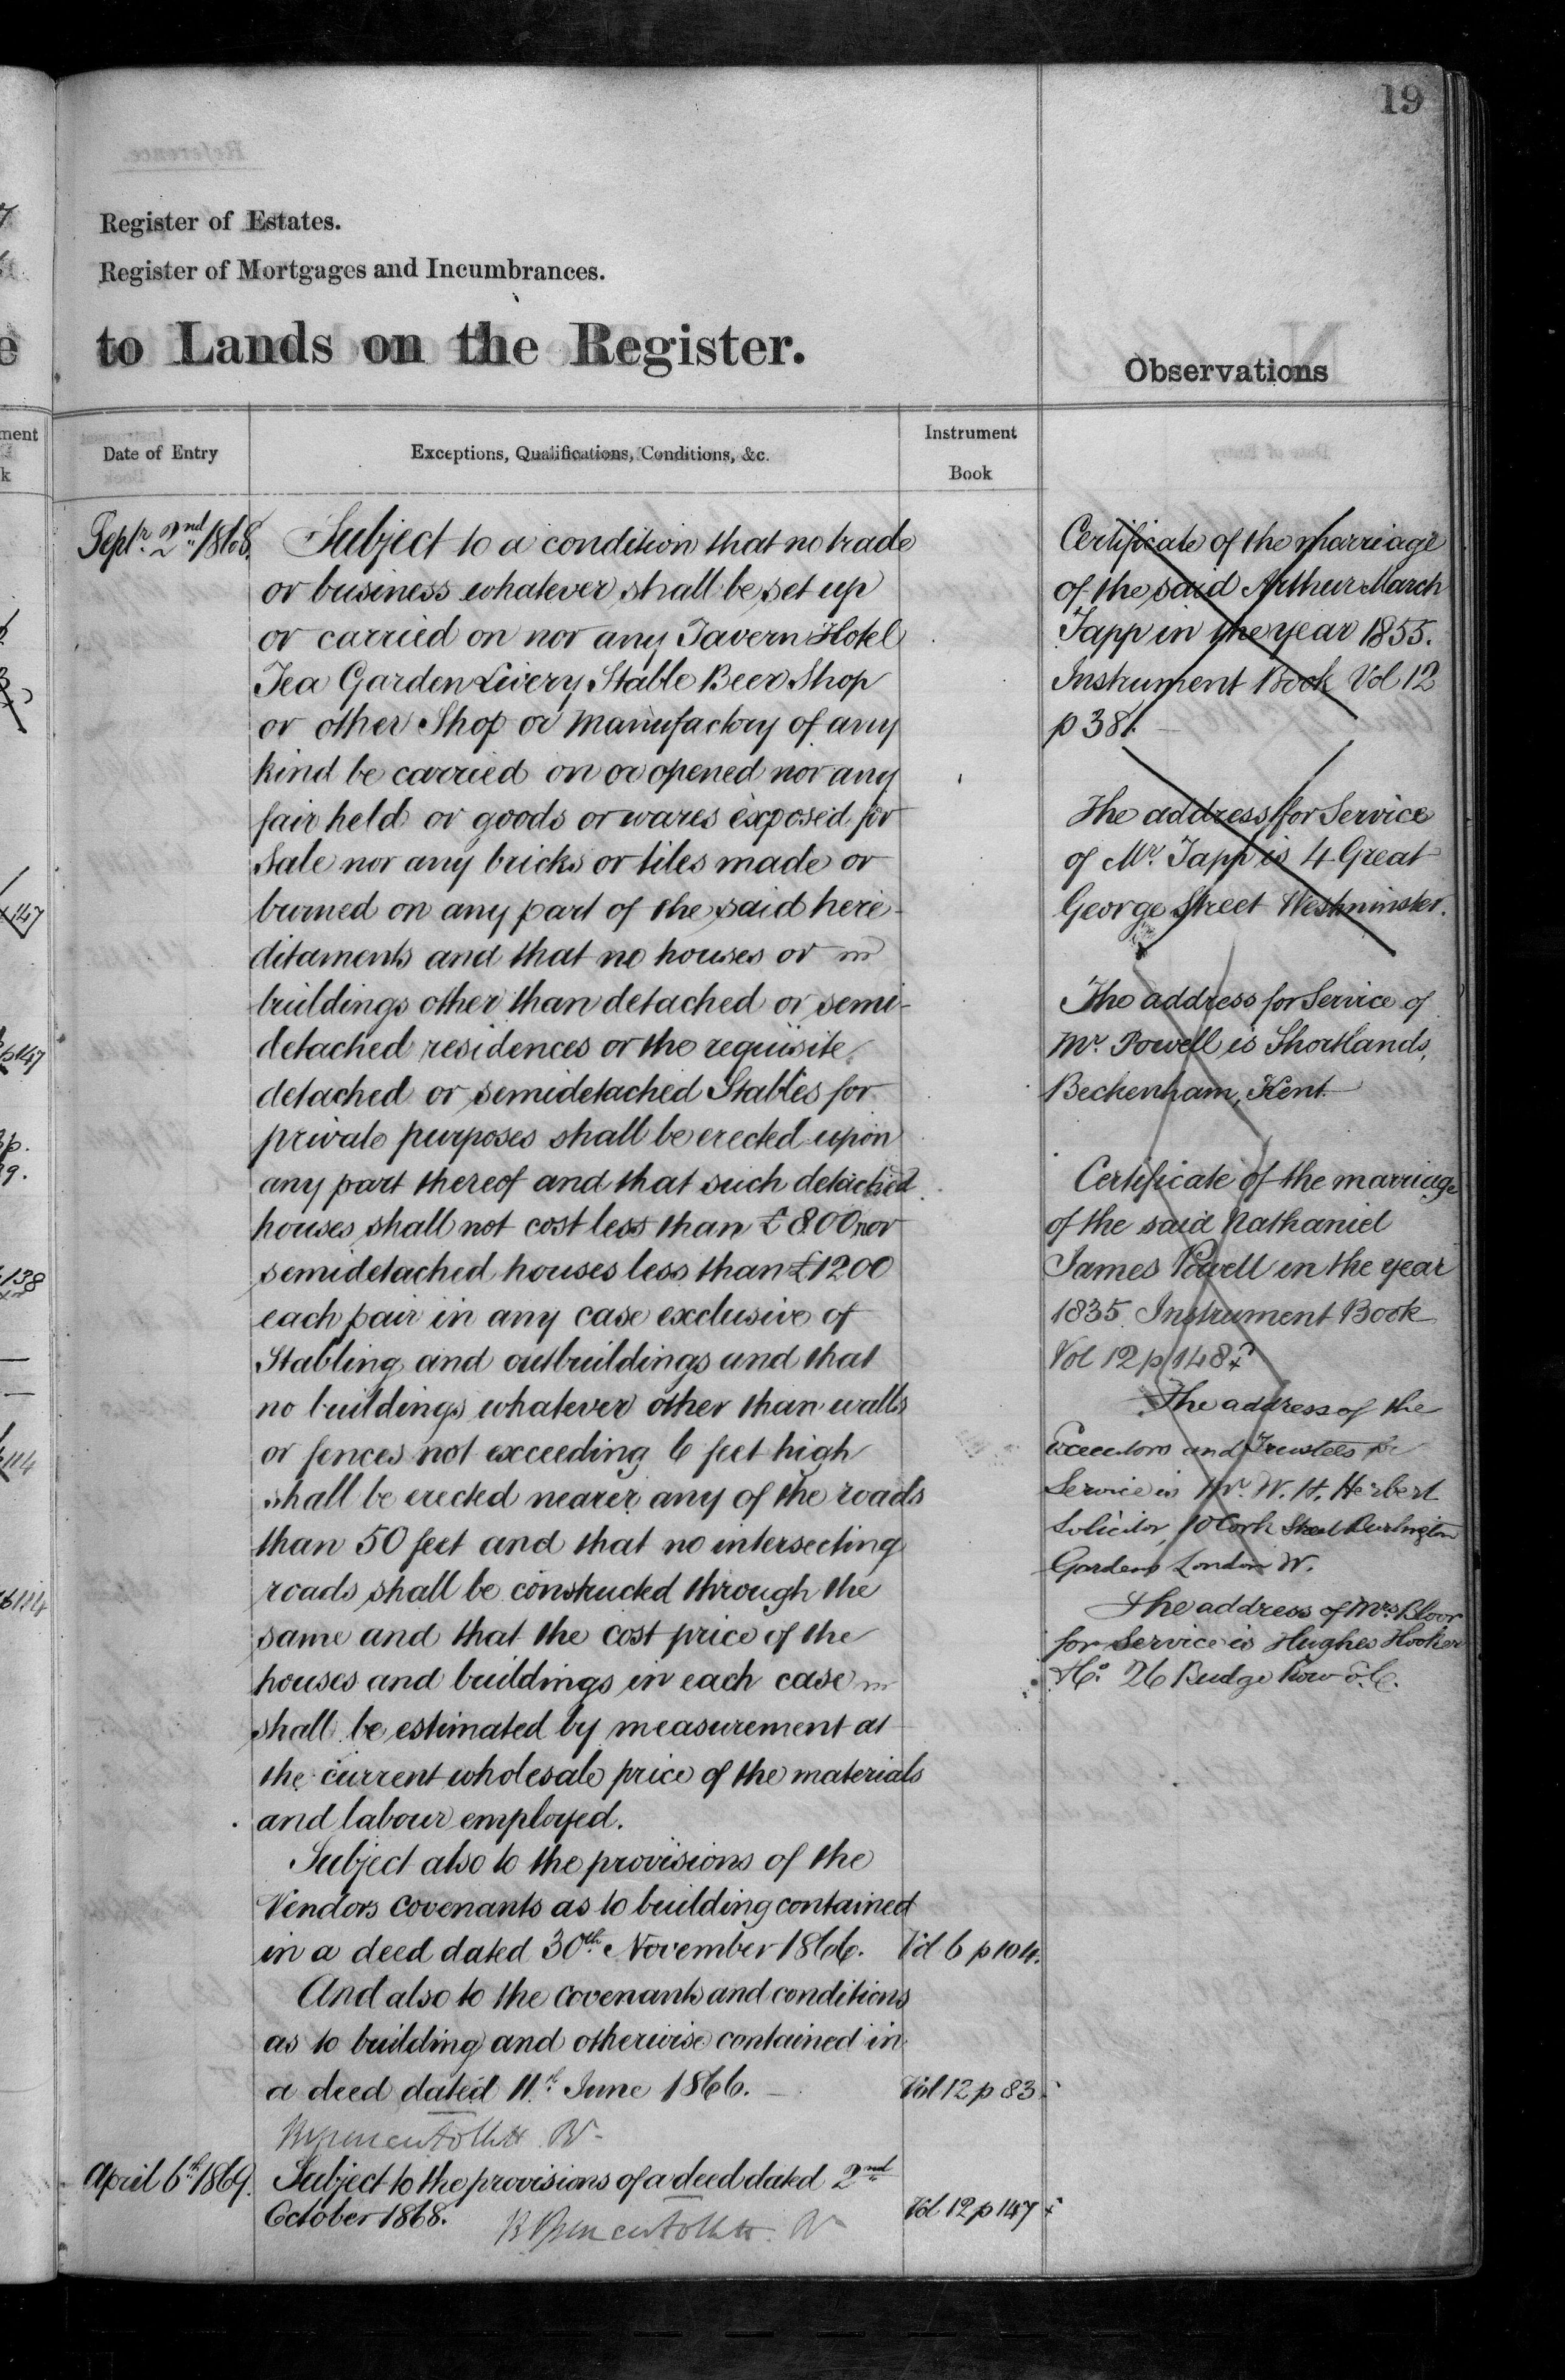 19
Register of Estates.
Register of Mortgages and Incumbrances.
to Lands on the Register.
Observations
Date of Entry
Exceptions, Qualifications, Conditions, &c.
Instrument
Book
Septr. 2nd 1868. Subject to a condition that no trade
or business whatever shall be set up
or carried on nor any Tavern Hotel
Tea Garden Livery Stable Beer Shop
or other Shop or Manufactory of any
kind be carried on or opened nor any
fair held or goods or wares exposed for
Sale nor any bricks or tiles made or
burned on any part of the said here-
ditaments and that no houses or
buildings other than detached or semi-
detached residences or the requisite
detached or semidetached Stables for
private purposes shall be erected upon
any part thereof and that such detached
houses shall not cost less than £800 nor
semidetached houses less than £1200
each pair in any case exclusive of
Stabling and outbuildings and that
no buildings whatever other than walls
or fences not exceeding 6 feet high
shall be erected nearer any of the roads
than 50 feet and that no intersecting
roads shall be constructed through the
same and that the cost price of the
houses and buildings in each case
shall be estimated by measurement at
the current wholesale price of the materials
and labour employed.
Subject also to the provisions of the
Vendors covenants as to building contained
in a deed dated 30th November 1866. Vol 6 p 104.
And also to the covenants and conditions
as to building and otherwise contained in
a deed dated 11th June 1866. Vol 12 p 83
April 6th 1869. Subject to the provisions of a deed dated 2nd
October 1868. Vol 12 p 147
Certificate of the marriage
of the said Arthur March
Tapp in the year 1855.
Instrument Book Vol 12
p 381.
The address for Service
of Mr. Tapp is 4 Great
George Street Westminster.
The address for Service of
Mr. Powell is Shortlands,
Beckenham, Kent
Certificate of the marriage
of the said Nathaniel
James Powell in the year
1835. Instrument Book
Vol 12 p 148
The address of the
Executors and Trustees for
Service is Mr. W. H. Herbert
Solicitor, 10 Cork Street Burlington
Gardens London W.
The address of Mrs Bloor
for Service is Hughes Hooker
& Co. 26 Budge Row E.C.